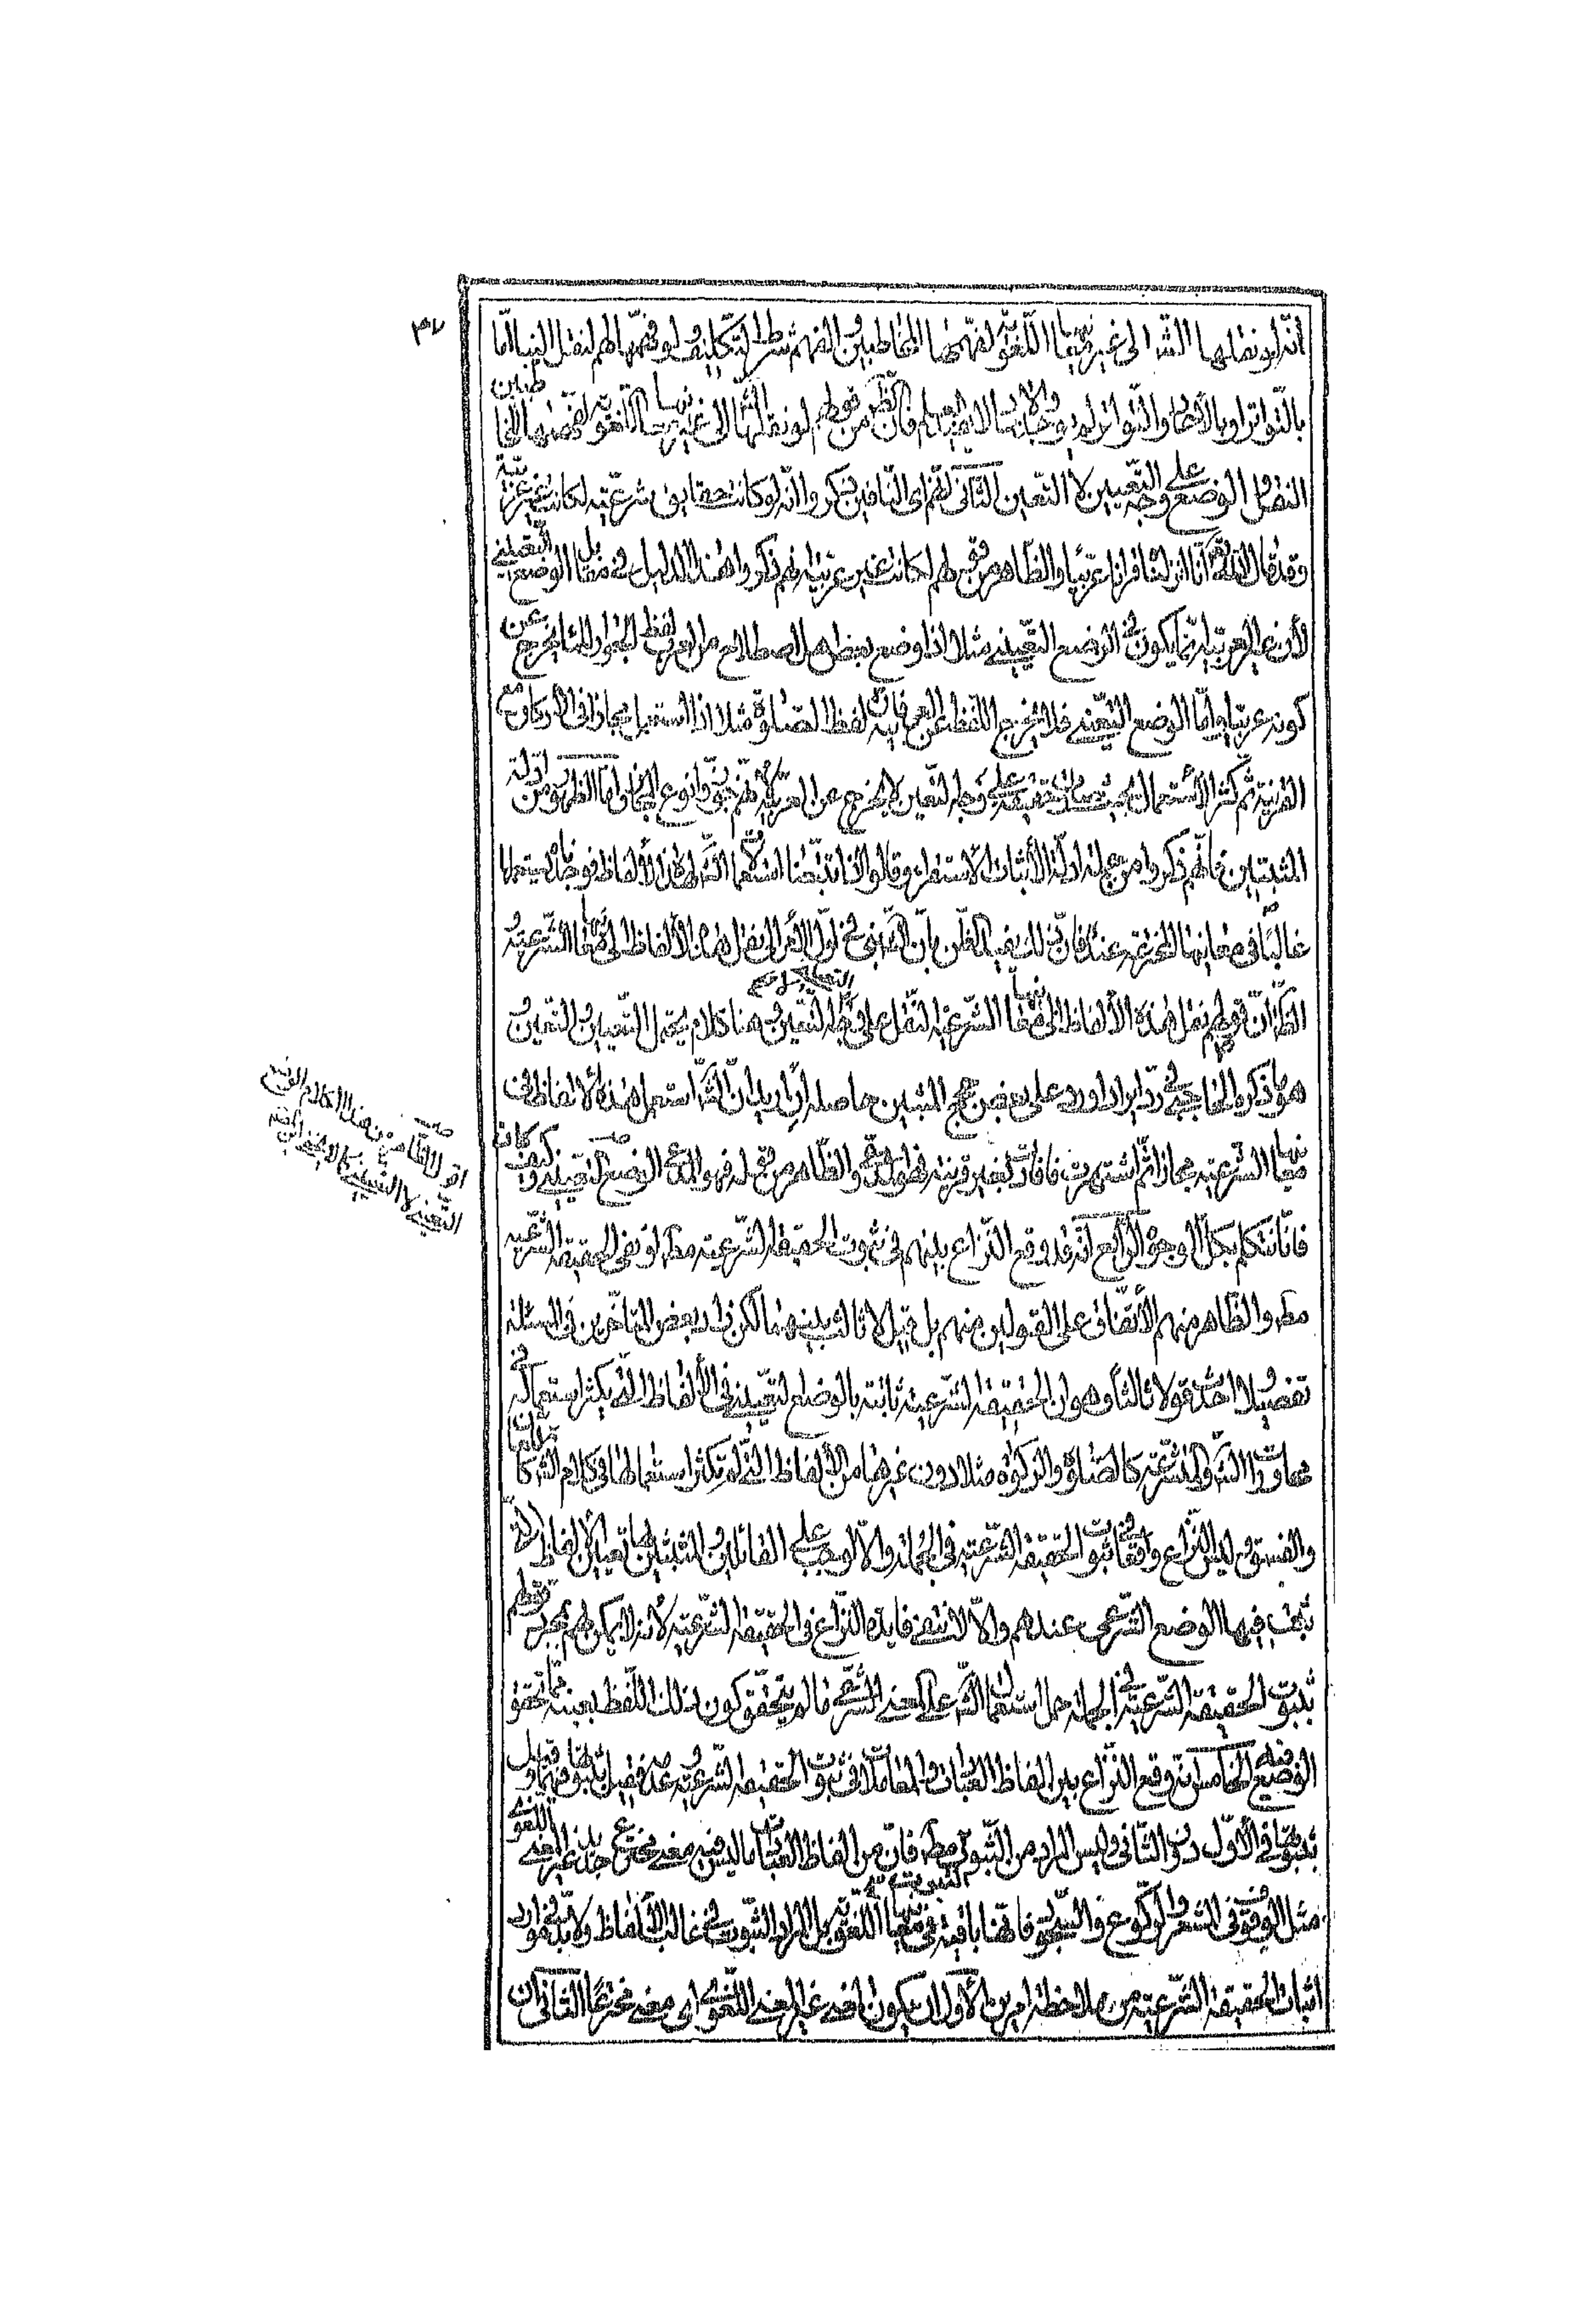 انّه لو نقلها الشّٰ الى غير معانيها اللّغويّة لفهّمها المخاطبين و الفهم شرط التكليف و لو فهّمها لهم لنقل الينا امّا
بالتّواتر او بالآحاد و التّواتر لم يوجد و الآحاد لا يفيد العلم فانّ الظّاهر من قولهم لو نقلها الى غير معانيها اللّغويّة لفهّمها المخاطبين
النقل و الوضع على وجه التّعيين لا التّعيّن الثّانى انّهم اى النّافين ذكروا انّه لو كانت حقايق شرعيّة لكانت غير عربيّة
و قد قال اللّه تعالى انّا انزلناه قرانا عربيّا و الظّاهر من قولهم لكانت غير عربيّة انهم ذكروا هذا الدليل فى مقابل الوضع التّعيينى
لأن غير العربيّة انّما يكون فى الوضع التّعيينى مثلا اذا وضع بعض اهل اصطلاح من العرب لفظ لمعنى يخرج عن
كونه عربيّا و امّا الوضع التّعيّنى فلا يخرج اللّفظ عن العربيّة فانّ لفظ الصّلوة مثلا اذا استعمل مجازا فى الاركان مع
القرينة ثم كثر الأستعمال بحيث صارت حقيقة على وجه التّعيّن لا يخرج عن العربيّة لانّهم جوّزوا نوع المجاز و امّا الظّهور من ادلة
المثبتين فانّهم ذكروا من جملة ادلّة الأثبات الأستقراء و قالوا اذا تتبّعنا استعمال الشّٰ لهذه الألفاظ فوجدناه يستعملها
غالبًا فى معانيها المخترعة عنده فانّ ذلك يفيد الظّن بانّ الشّٰ بنى فى اوّل الأمر الى نقل هذه الألفاظ الى معانيها الشّرعيّة و
الظّٰ انّ قولهم نقل هذه الألفاظ الى معانيها الشّرعيّة النّقل على وجه التّعيين و هنا كلام يحتمل التّعيين و التعيّن و
هو ما ذكره الحاجبى فى ردّ ايراد اورد على بعض حجج المثبتين حاصله ان اريد انّ الشّٰ استعمل هذه الألفاظ فى
معانيها الشرعيّة مجازا ثم اشتهرت فافادت بغير قرينة فهو المدّعى و الظّاهر من قوله فهو المدّعى الوضع التّعيّنى و كيف كان
فانّا نتكلم بكلّ الوجوه الرّابع انّه قد وقع النّزاع بينهم فى ثبوت الحقيقة الشّرعيّة مطٰ او نفى الحقيقة الشّرعيّة
مطٰ و الظّاهر منهم الأتّفاق على القولين منهم بل قيل لا ثالث بينهما لكن زاد بعض المتأخّرين فى المسئلة
تفصيلا احدث قولا ثالثًا و هو ان الحقيقة الشّرعيّة ثابتة بالوضع التّعيّنى فى الألفاظ الّتى يكثر استعمالها فى
محاورات الشّٰ و المتشرّعة كالصّلوة و الزكوة مثلا دون غيرهما من الألفاظ الّتى لم تكثر استعمالها فى كلام الشّٰ كالايمان
و الفسق و ليس النّزاع واقعًا فى ثبوت الحقيقة الشّرعيّة فى الجملة و الّا لوجب على القائلين و المثبتين لها تعيين الألفاظ الّتى
ثبت فيها الوضع الشّرعى عندهم و الّا لانتفى فايدة النّزاع فى الحقيقة الشّرعيّة لأنه لا يمكن لهم بمجرّد قولهم
بثبوت الحقيقة الشّرعيّة فى الجملة حمل استعمال الشّٰ على المعنى الشّرعى ما لم يتحقّق كون ذلك اللّفظ بعينه ممّا تحقّق
الوضع فيه الخامس انّه وقع النّزاع بين الفاظ العبادات و المعاملات فى ثبوت الحقيقة الشّرعيّة و عدمه فقيل بثبوتها فيهما و قيل
بثبوتها فى الأوّل دون الثّانى و ليس المراد من الثّبوت مطٰ فانّ من الفاظ العبادات ما ليس فيه معنى مخترع جديد غير المعنى اللّغوى
مثل الوقوف فى المشعر و الرّكوع و السّجود فانّها باقية فى معانيها اللّغويّة بل المراد الثبوت فى غالب الألفاظ و لا بدّ فى موارد
اثبات الحقيقة الشّرعيّة من ملاحظة امرين الأوّل ان يكون المعنى غير المعنى اللّغوى اى معنى مخترعًا الثّانى ان
٣٧
اقول الظّاهر من هذا الكلام
التّعيّنى لا التّعيينى كما لا يخفى